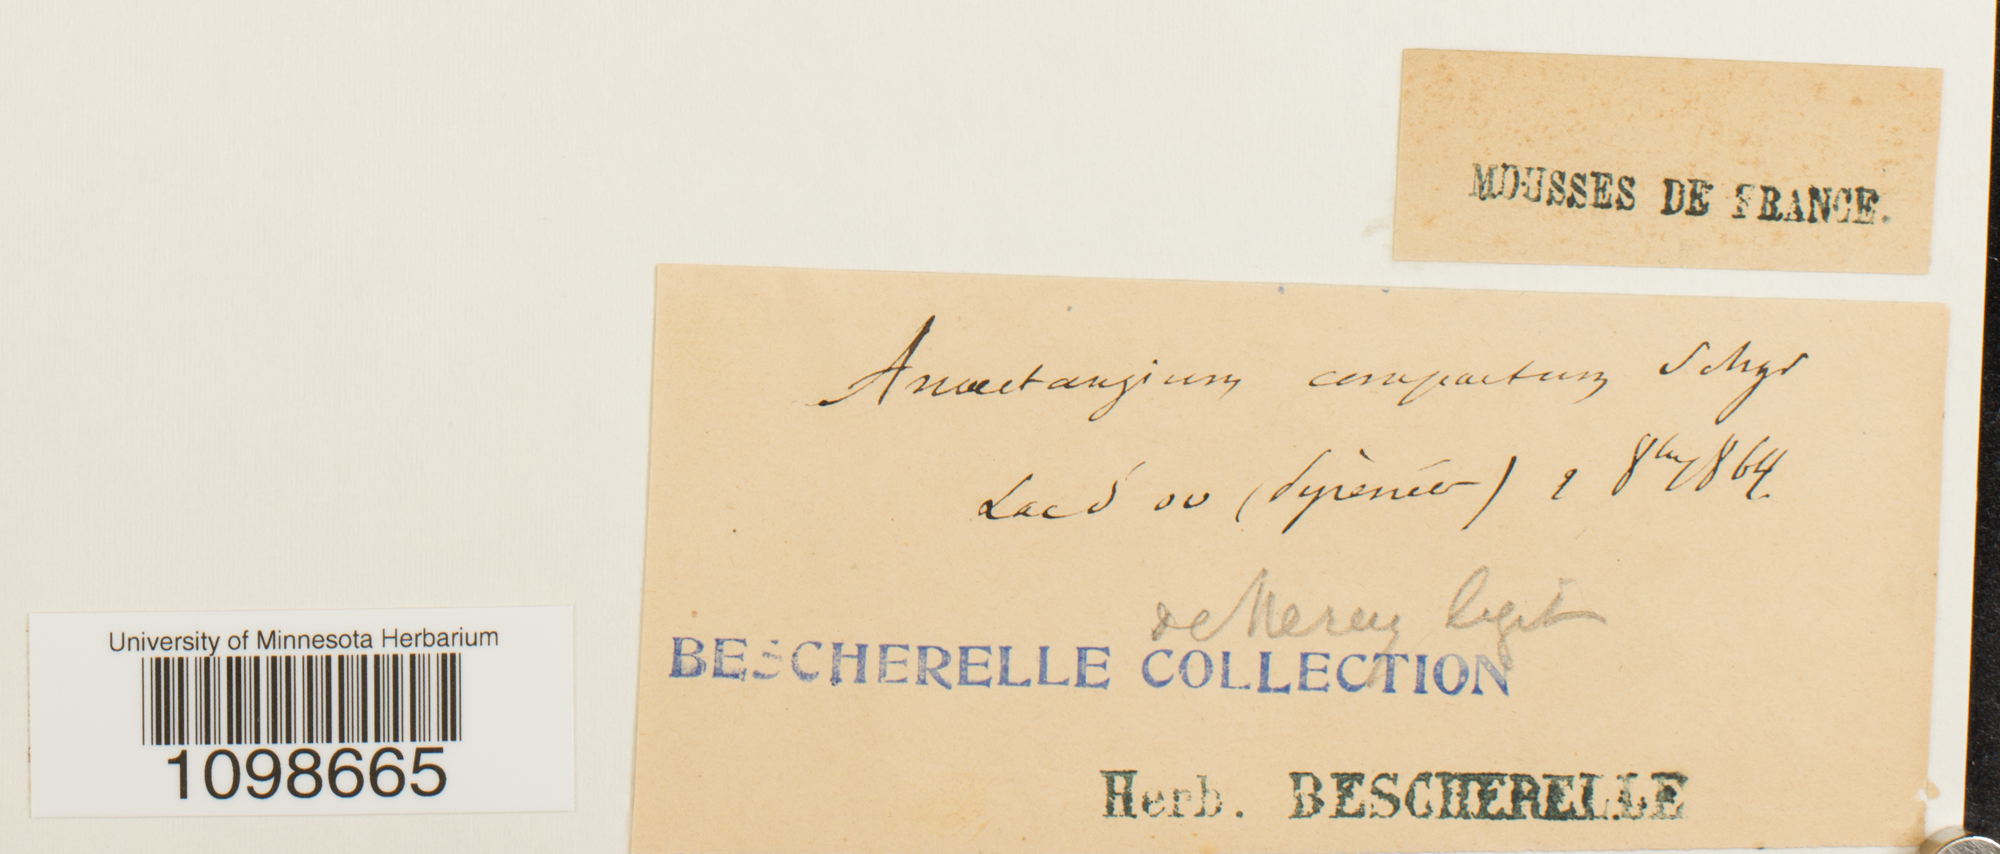 MOUSSES DE FRANCE.
Anoectangium compactum Schgr
Lac d'oo (Pyrénées) 9 8bre 1864.
de Mercey legit
BESCHERELLE COLLECTION
Herb. BESCHERELLE
University of Minnesota Herbarium
1098665